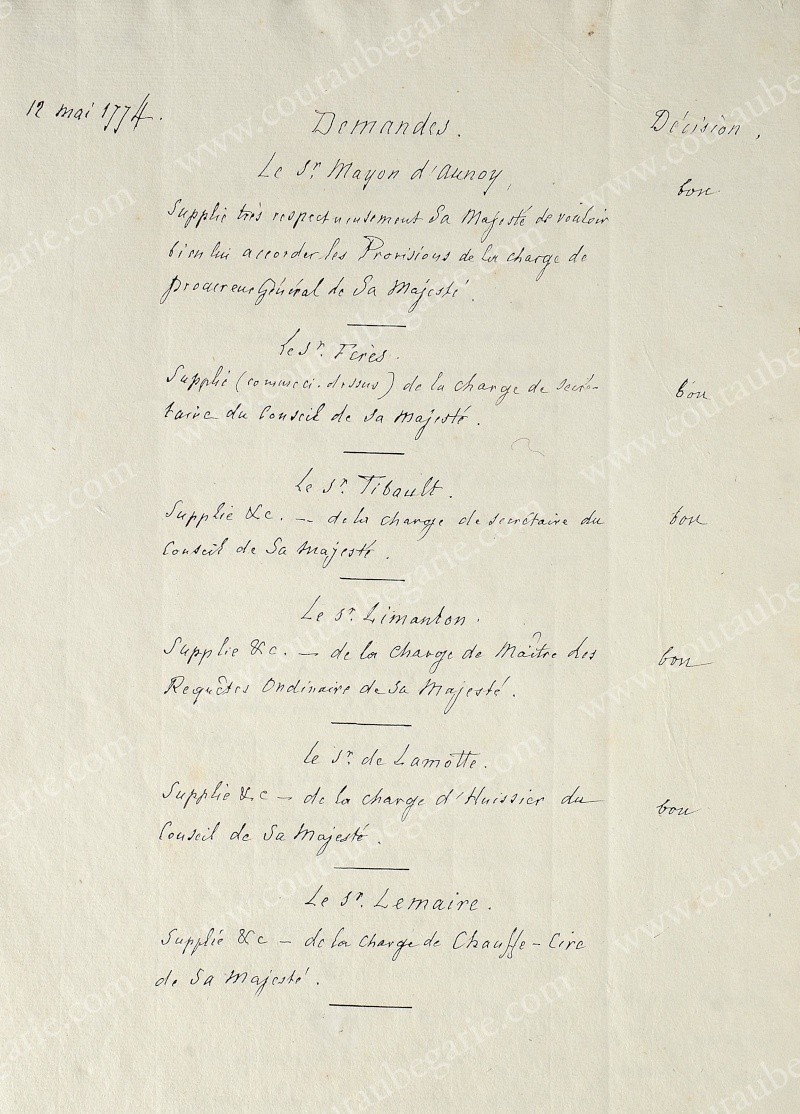 12 mai 1774.
Demandes.
Décision.
Le Sr. Mayon d'Aunoy,
bon
Supplie très respectueusement Sa Majesté de vouloir
bien lui accorder les Provisions de la charge de
procureur Général de Sa Majesté.
Le Sr. Ferès.
Supplie (comme ci-dessus) de la charge de secré-
taire du Conseil de Sa Majesté.
bon
Le Sr. Tibault.
Supplie &c. — de la charge de secrétaire du
bon
Conseil de Sa Majesté.
Le Sr. Limanton.
Supplie &c. — de la charge de Maître des
bon
Requêtes Ordinaire de Sa Majesté.
Le Sr. de Lamotte.
Supplie &c — de la charge d'Huissier du
bon
Conseil de Sa Majesté.
Le Sr. Lemaire.
Supplie &c — de la charge de Chauffe-Cire
de Sa Majesté.
www.coutaubegarie.com